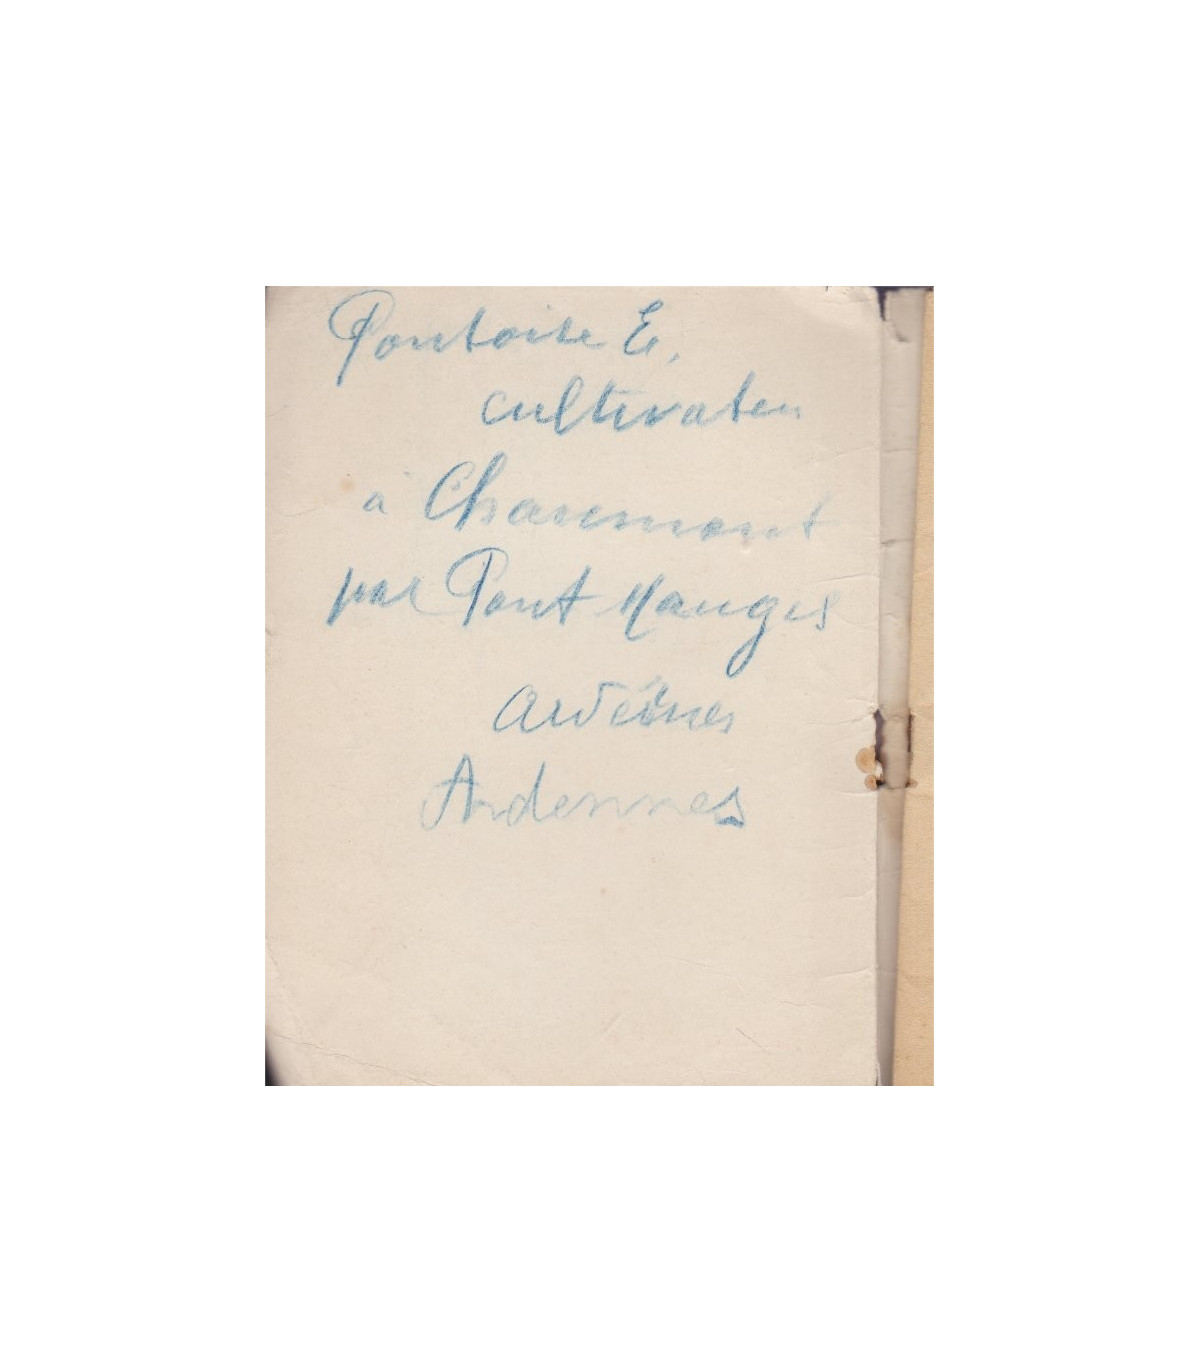 Pontoise E,
cultivateu
à Chaumont
par Pont Maugis
Ardennes
Ardennes